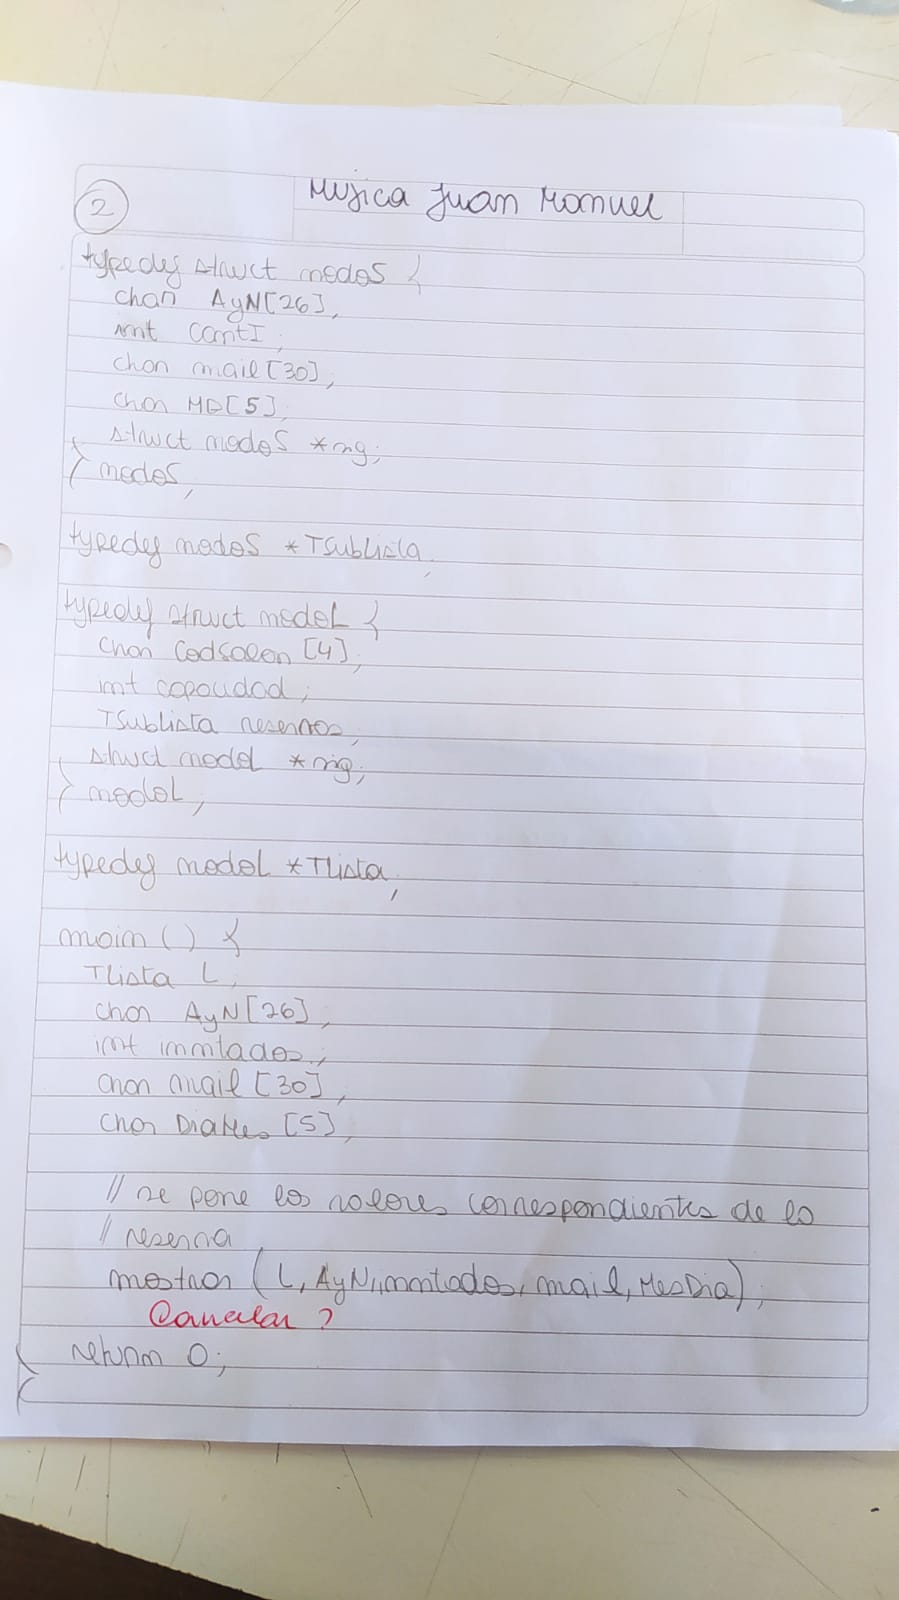 2
Mujica Juan Manuel
typedef struct nodoS {
char AyN[26];
int CantI;
char mail[30];
char MD[5];
struct nodoS *sig;
} nodoS;
typedef nodoS *TSublista;
typedef struct nodoL {
char CodSalon [4];
int capacidad;
TSublista reservas;
struct nodoL *sig;
} nodoL;
typedef nodoL *TLista;
main() {
TLista L;
char AyN[26];
int invitados;
char mail [30];
char DiaMes [5];
// se pone los valores correspondientes de la
// reserva
mostrar (L, AyN, invitados, mail, MesDia);
Cancelar ?
return 0;
}